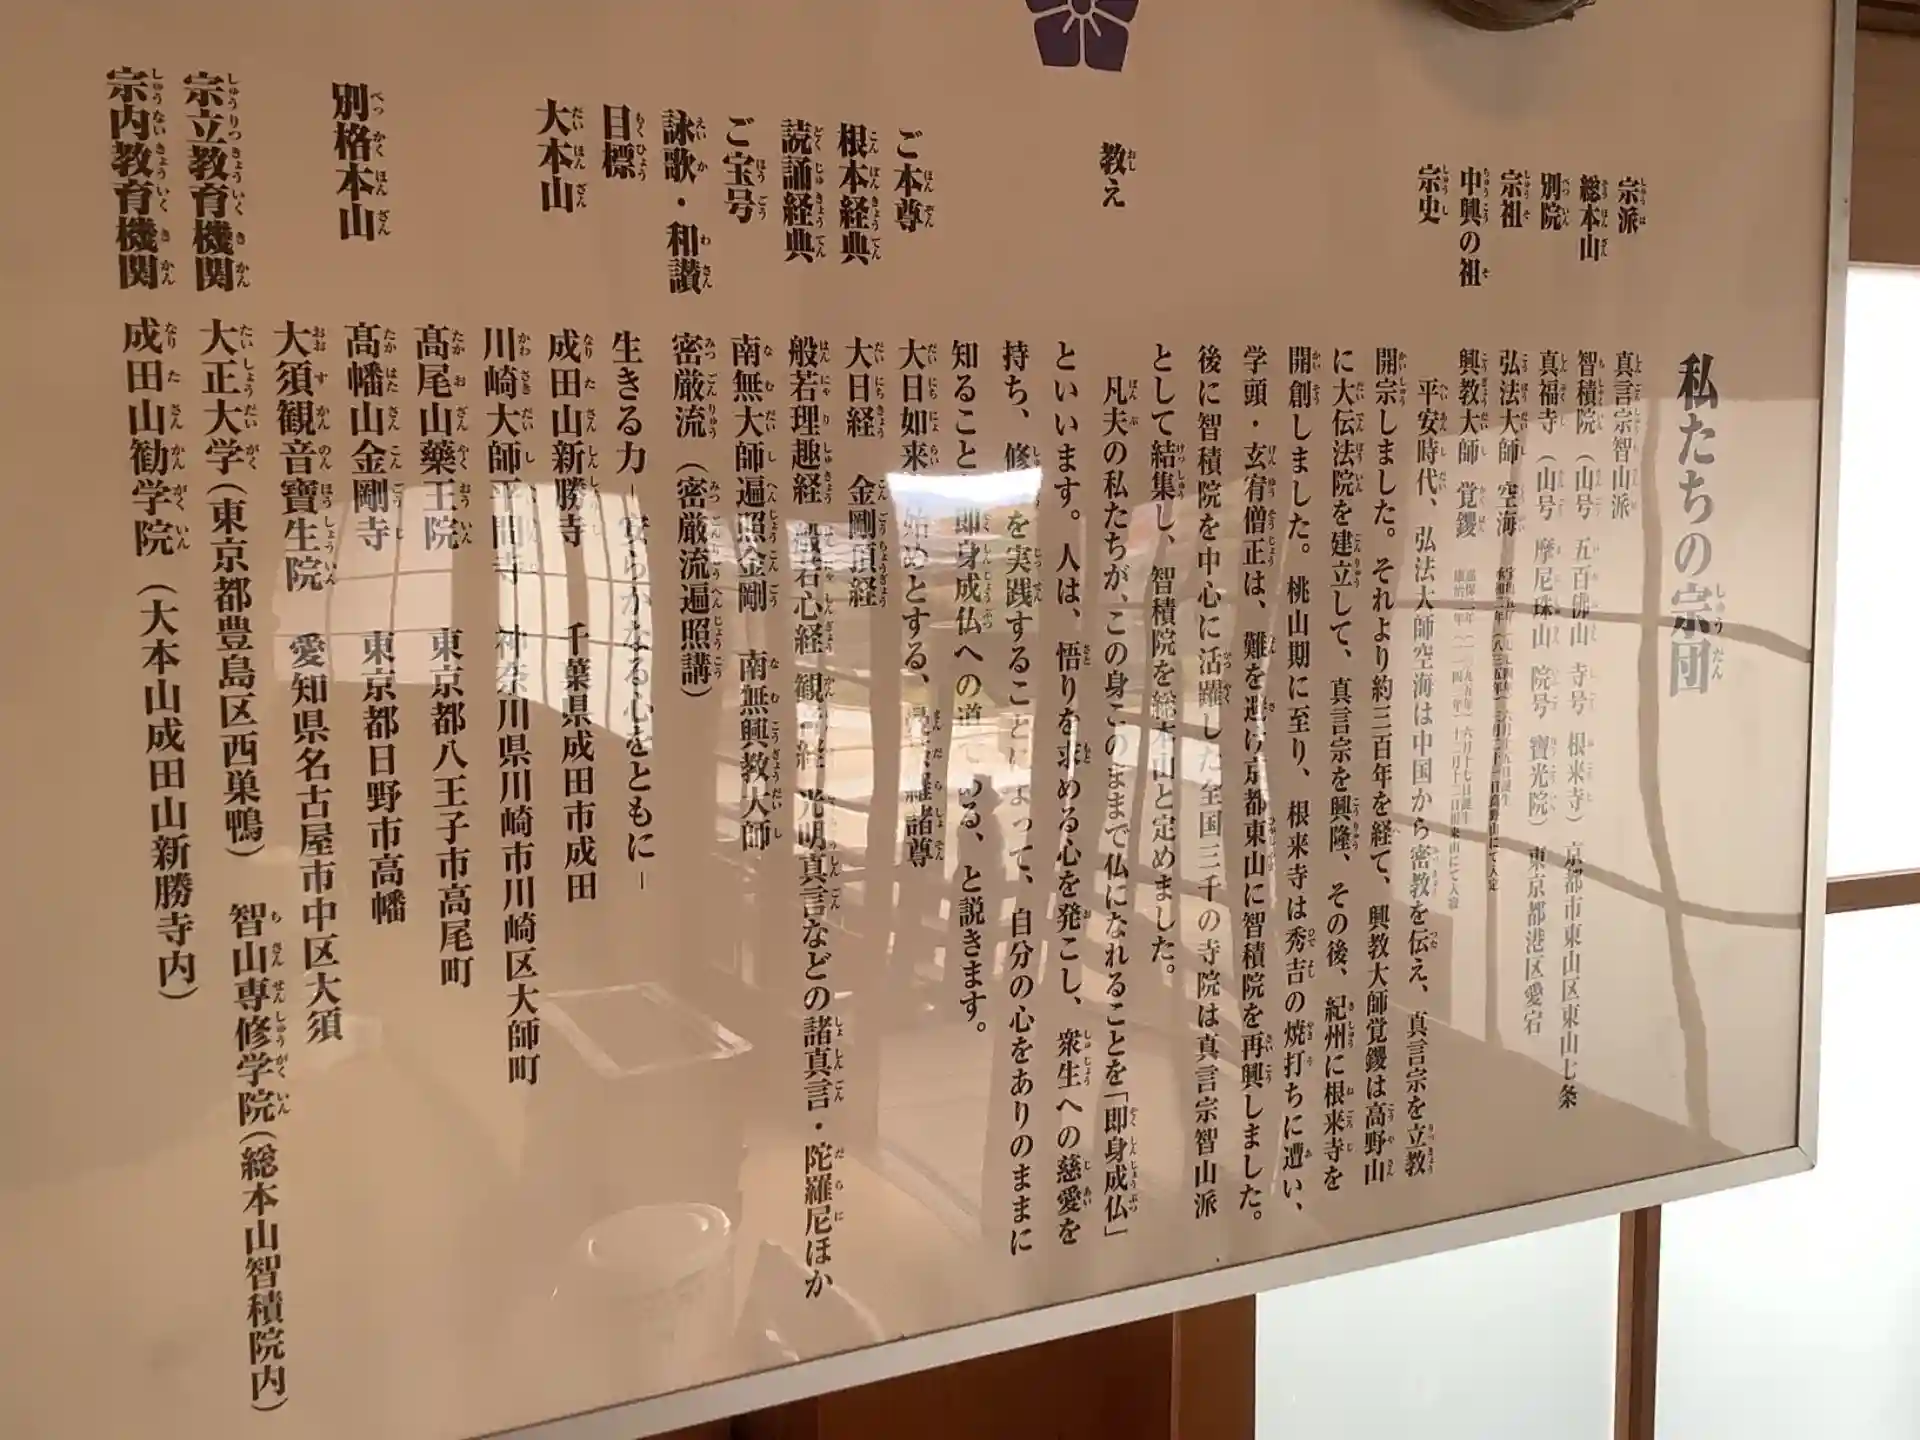 私たちの宗団
宗派 真言宗智山派
総本山 智積院（山号 五百佛山 寺号 根来寺）京都市東山区東山七条
別院 真福寺（山号 摩尼珠山 院号 寶光院）東京都港区愛宕
宗祖 弘法大師 空海
中興の祖 興教大師 覚鑁
宗史 平安時代、弘法大師空海は中国から密教を伝え、真言宗を立教
開宗しました。それより約三百年を経て、興教大師覚鑁は高野山
に大伝法院を建立して、真言宗を興隆、その後、紀州に根来寺を
開創しました。桃山期に至り、根来寺は秀吉の焼打ちに遭い、
学頭・玄宥僧正は、難を逃け京都東山に智積院を再興しました。
後に智積院を中心に活躍した全国三千の寺院は真言宗智山派
として結集し、智積院を総本山と定めました。
教え 凡夫の私たちが、この身このままで仏になれることを「即身成仏」
といいます。人は、悟りを求める心を発こし、衆生への慈愛を
持ち、修 を実践することによって、自分の心をありのままに
知ること 即身成仏への道である、と説きます。
ご本尊 大日如来 始めとする、曼荼羅諸尊
根本経典 大日経 金剛頂経
読誦経典 般若理趣経 般若心経 観音経 光明真言などの諸真言・陀羅尼ほか
ご宝号 南無大師遍照金剛 南無興教大師
詠歌・和讃 密厳流（密厳流遍照講）
目標 生きる力－安らかなる心をともに－
大本山 成田山新勝寺 千葉県成田市成田
川崎大師平間寺 神奈川県川崎市川崎区大師町
髙尾山藥王院 東京都八王子市高尾町
別格本山 髙幡山金剛寺 東京都日野市高幡
大須観音寶生院 愛知県名古屋市中区大須
宗立教育機関 大正大学（東京都豊島区西巣鴨） 智山専修学院（総本山智積院内）
宗内教育機関 成田山勧学院（大本山成田山新勝寺内）